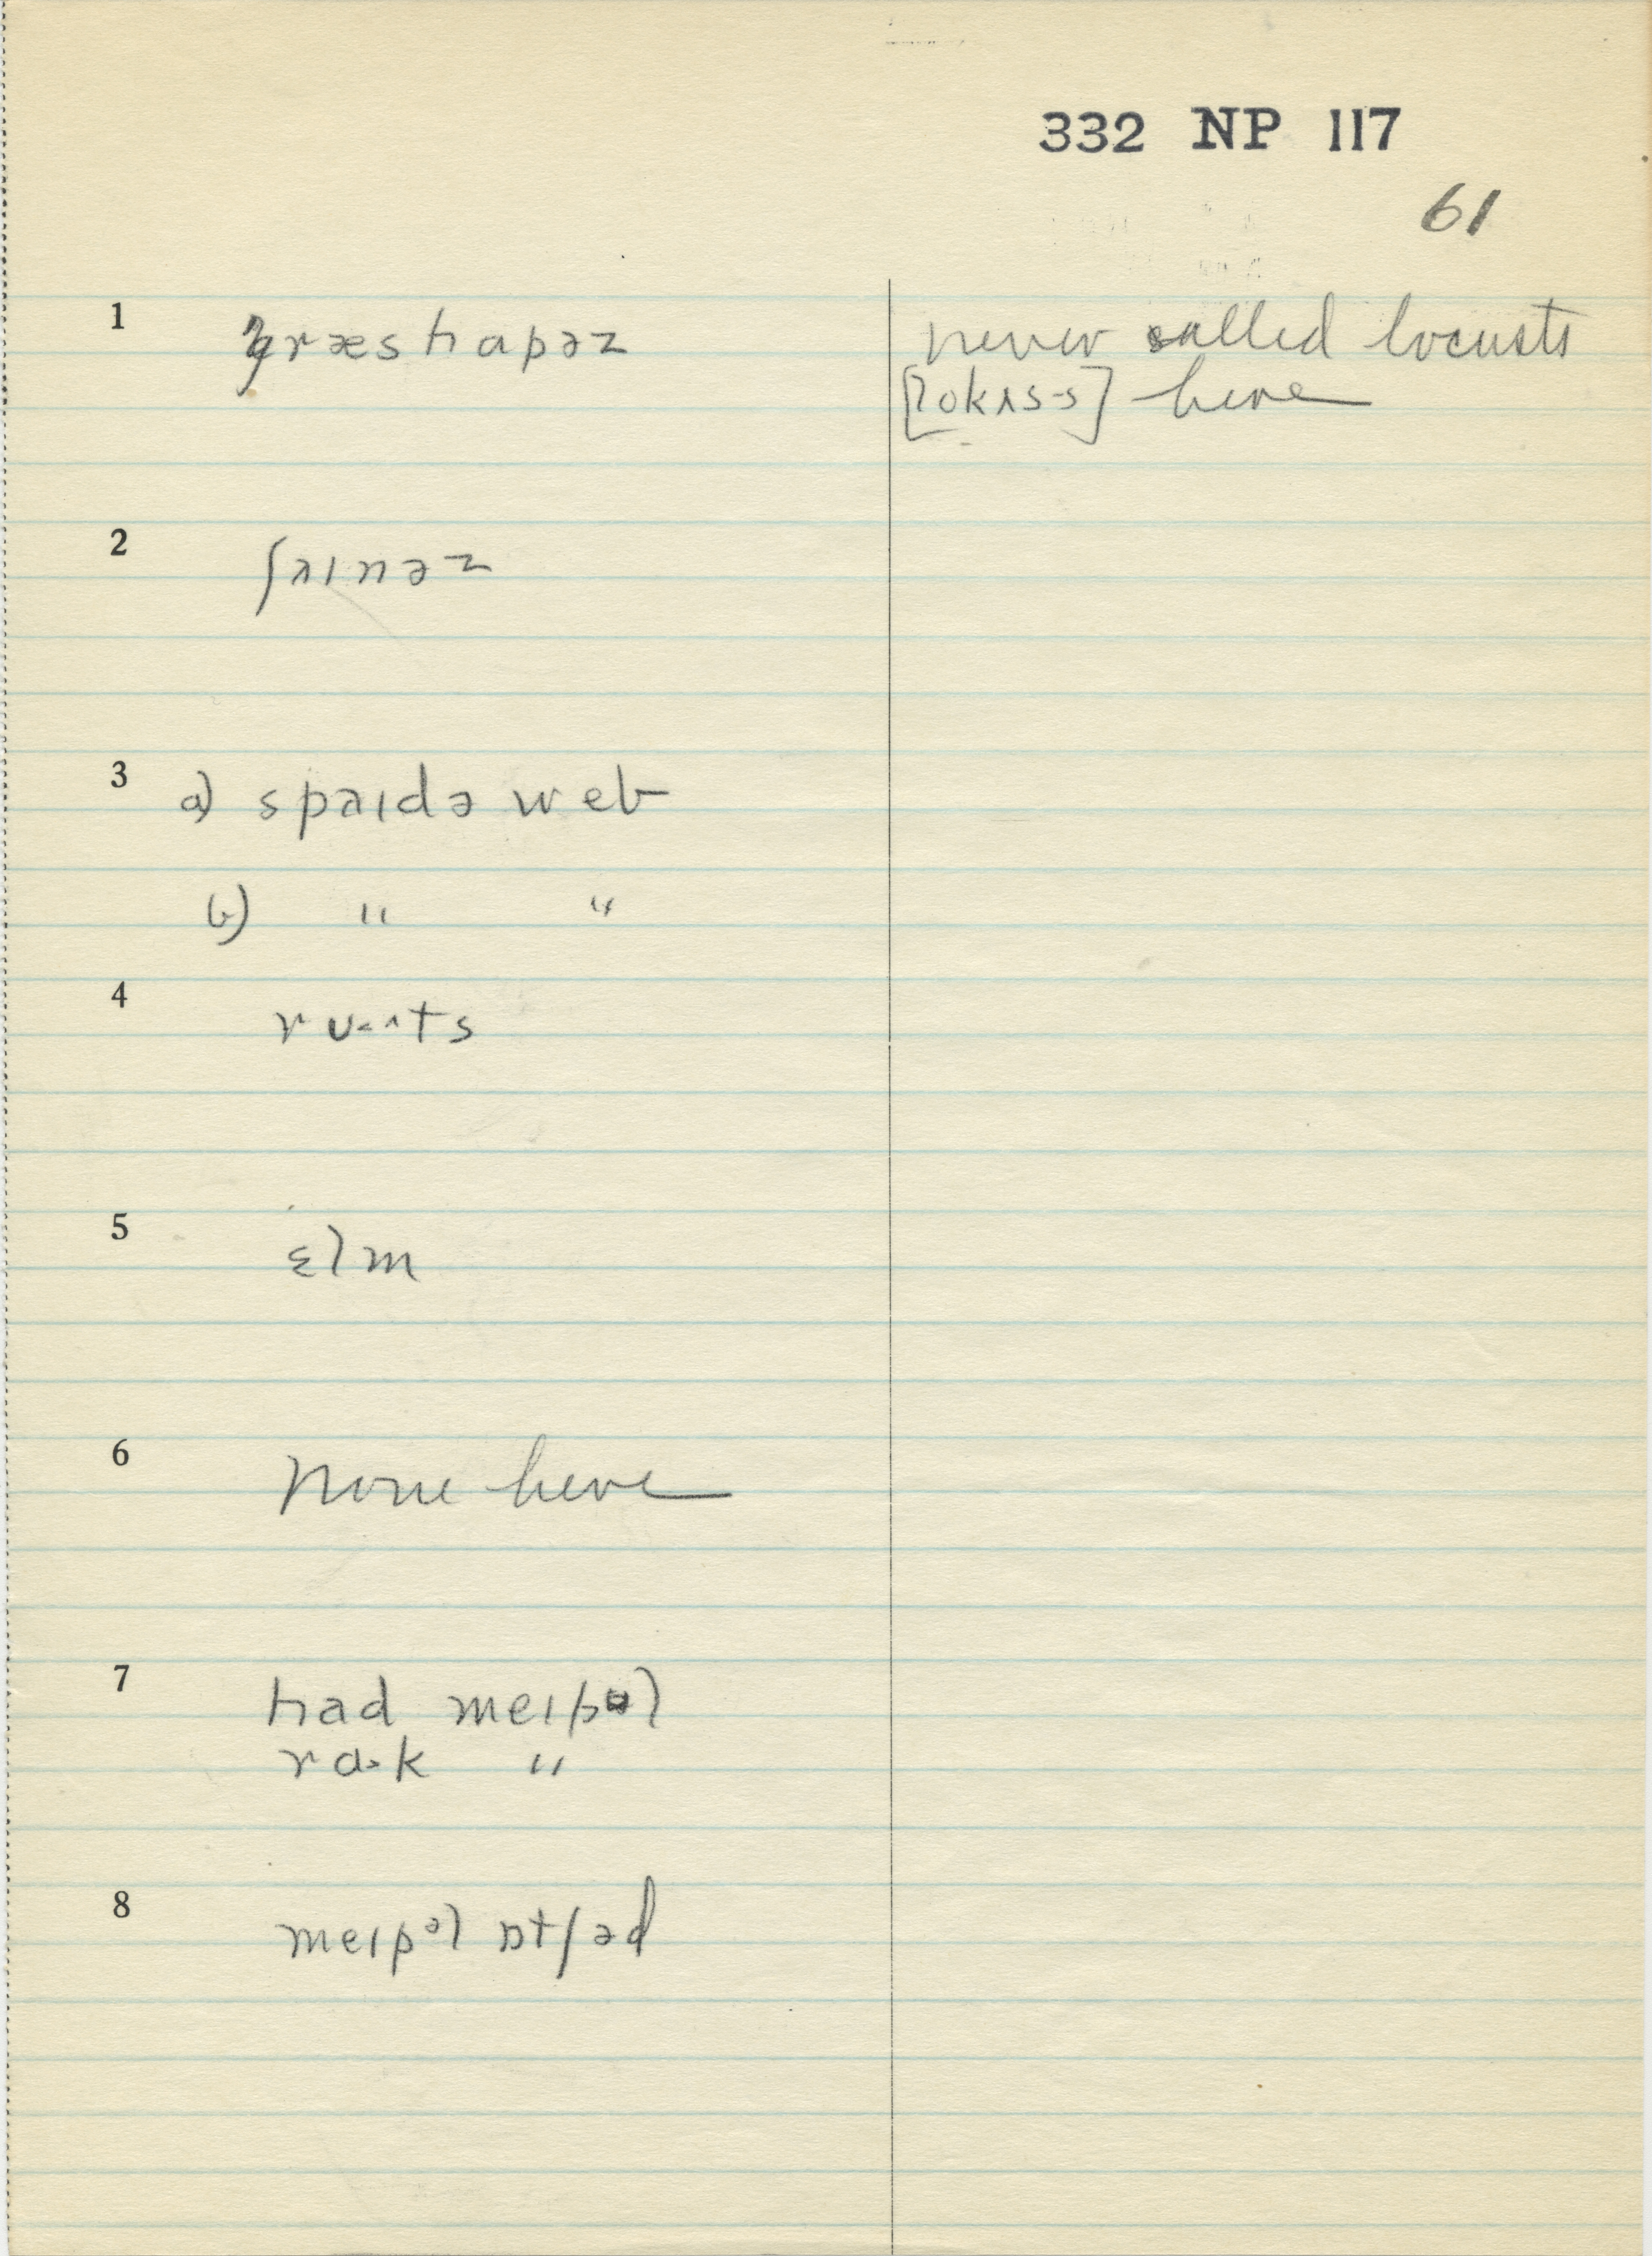 332 NP 117
61
1 græshapəz
never called locusts
[lokʌs·s] here
2 ʃaɪnəz
3 a) spaɪdə web
b) " "
4
5 ɛlm
6 none here
7 had meɪpəl
rɑ·k "
8 meɪpəl ɒtʃəd